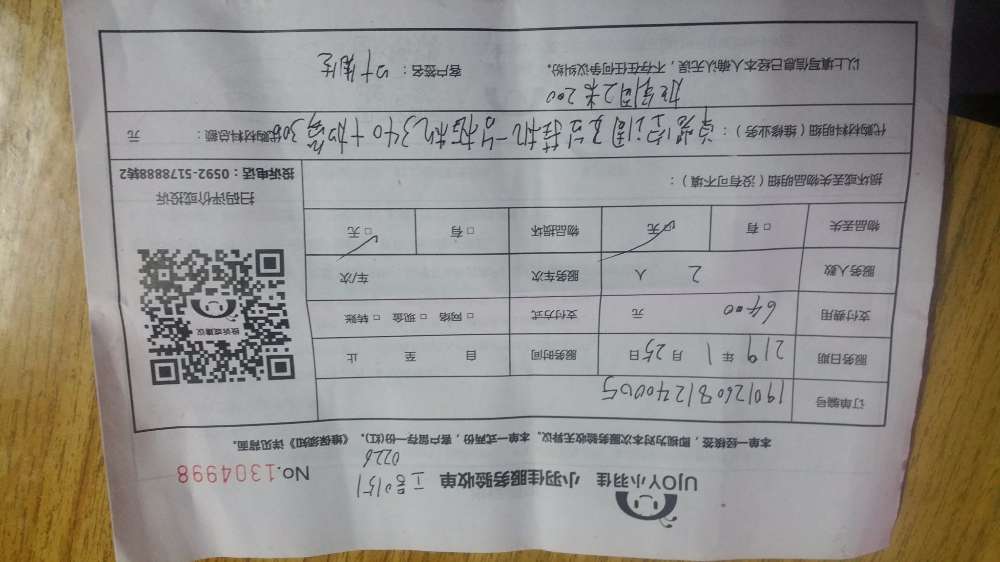 UJOY小羽佳 小羽佳服务验收单 No.1304998
工号0151
0226
本单一经核签，即视为对本次服务验收无异议。本单一式两份，客户留存一份(红)。《维保须知》详见背面。
订单编号
服务日期 219年1月25日 服务时间 自 至 止
支付费用 6400 元 支付方式 □网络 □现金 □转账
服务人数 2 人 服务车次 车/次
物品丢失 □有 □无 物品损坏 □有 □无
投诉或建议
扫码评价或投诉
投诉电话：0592-5178888转2
损坏或丢失物品明细（没有可不填）：
代购材料明细（维修业务）： 340+加 300 代购材料总额： 元
加 铜 2米 200
以上填写信息已经本人确认无误，不存在任何争议纠纷。 客户签名：